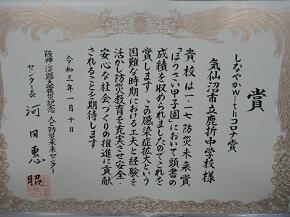 賞
しなやかwithコロナ賞
気仙沼市立鹿折中学校 様
貴校は1.17防災未来賞
「ぼうさい甲子園」において頭書の
成績を収められましたのでこれを
賞します この感染症拡大という
困難な時期における工夫と経験を
活かし防災教育を充実させ安全・
安心な社会づくりの推進に貢献
されることを期待します
令和三年一月十日
阪神・淡路大震災記念 人と防災未来センター
センター長 河田惠昭